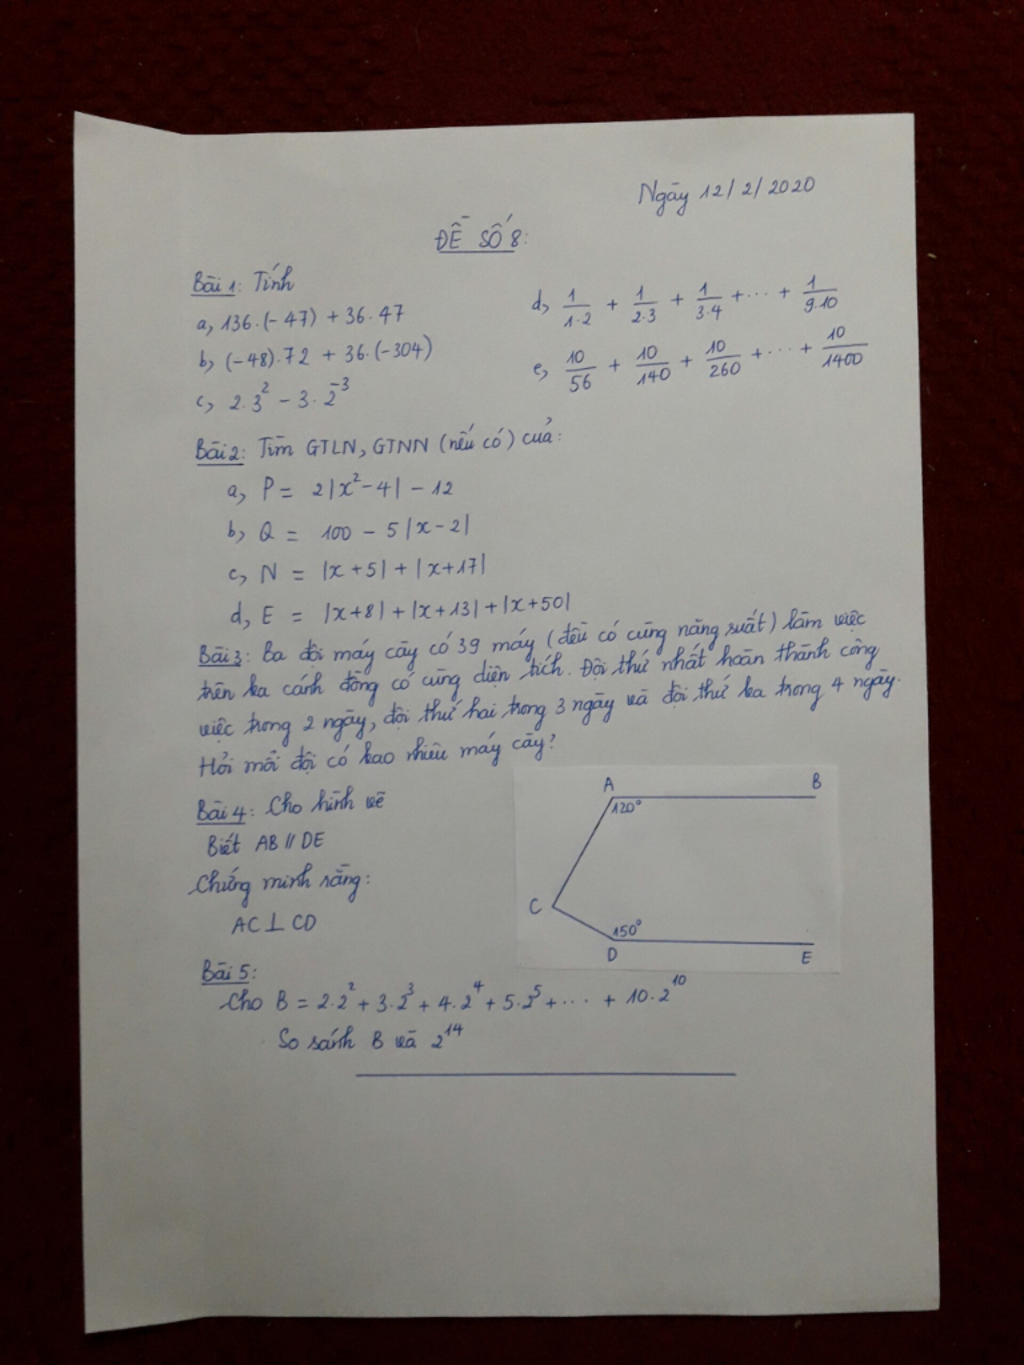 Ngày 12/2/2020
ĐỀ SỐ 8:
Bài 1: Tính
a, 136.(-47) + 36.47
b, (-48).72 + 36.(-304)
c, 2.3² - 3.2⁻³
d, 1/1.2 + 1/2.3 + 1/3.4 + ... + 1/9.10
e, 10/56 + 10/140 + 10/260 + ... + 10/1400
Bài 2: Tìm GTLN, GTNN (nếu có) của:
a, P = 2|x²-4| - 12
b, Q = 100 - 5|x-2|
c, N = |x+5| + |x+17|
d, E = |x+8| + |x+13| + |x+50|
Bài 3: Ba đội máy cày có 39 máy (đều có cùng năng suất) làm việc
trên ba cánh đồng có cùng diện tích. Đội thứ nhất hoàn thành công
việc trong 2 ngày, đội thứ hai trong 3 ngày và đội thứ ba trong 4 ngày.
Hỏi mỗi đội có bao nhiêu máy cày?
Bài 4: Cho hình vẽ
Biết AB // DE
Chứng minh rằng:
AC ⊥ CD
A B
120°
C
150°
D E
Bài 5:
Cho B = 2.2² + 3.2³ + 4.2⁴ + 5.2⁵ + ... + 10.2¹⁰
So sánh B và 2¹⁴